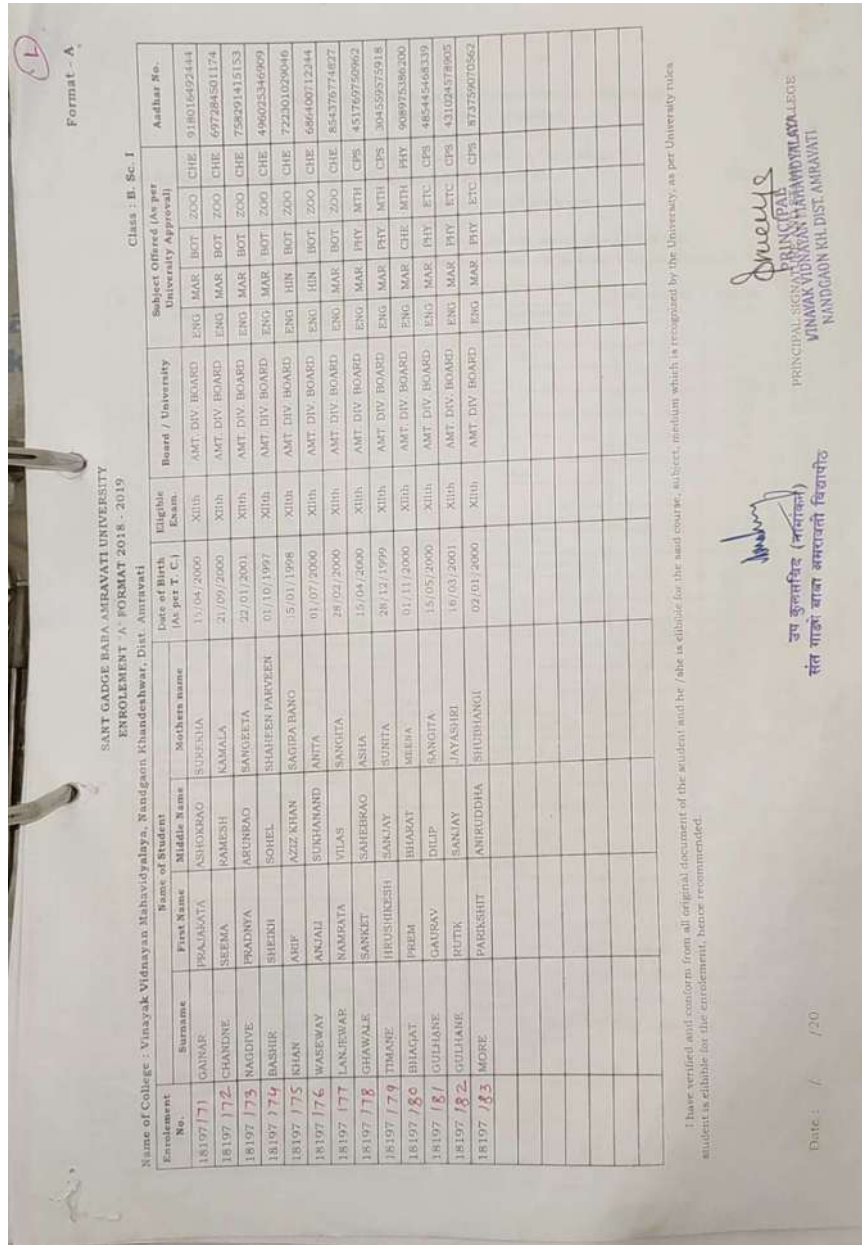 L
Format - A
SANT GADGE BABA AMRAVATI UNIVERSITY
ENROLEMENT "A" FORMAT 2018 - 2019
Name of College : Vinayak Vidnayan Mahavidyalaya, Nandgaon Khandeshwar, Dist. Amravati Class : B. Sc. I
Enrolement No. Name of Student Date of Birth (As per T. C.) Eligible Exam. Board / University Subject Offered (As per University Approval) Aadhar No.
Surname First Name Middle Name Mothers name
18197 171 GAINAR PRAJAKATA ASHOKRAO SUREKHA 15/04/2000 XIIth AMT. DIV. BOARD ENG MAR BOT ZOO CHE 918016492444
18197 172 CHANDNE SEEMA RAMESH KAMALA 21/09/2000 XIIth AMT. DIV. BOARD ENG MAR BOT ZOO CHE 697284501174
18197 173 NAGDIVE PRADNYA ARUNRAO SANGEETA 22/01/2001 XIIth AMT. DIV. BOARD ENG MAR BOT ZOO CHE 758291415153
18197 174 BASHIR SHEIKH SOHEL SHAHEEN PARVEEN 01/10/1997 XIIth AMT. DIV. BOARD ENG MAR BOT ZOO CHE 496025346909
18197 175 KHAN ARIF AZIZ KHAN SAGIRA BANO 15/01/1998 XIIth AMT. DIV. BOARD ENG HIN BOT ZOO CHE 722301029046
18197 176 WASEWAY ANJALI SUKHANAND ANITA 01/07/2000 XIIth AMT. DIV. BOARD ENG HIN BOT ZOO CHE 686400712244
18197 177 LANJEWAR NAMRATA VILAS SANGITA 28/02/2000 XIIth AMT. DIV. BOARD ENG MAR BOT ZOO CHE 854376774827
18197 178 GHAWALE SANKET SAHEBRAO ASHA 15/04/2000 XIIth AMT. DIV. BOARD ENG MAR PHY MTH CPS 451769750962
18197 179 TIMANE HRUSHIKESH SANJAY SUNITA 28/12/1999 XIIth AMT. DIV. BOARD ENG MAR PHY MTH CPS 304559575918
18197 180 BHAGAT PREM BHARAT MEENA 01/11/2000 XIIth AMT. DIV. BOARD ENG MAR CHE MTH PHY 908975386200
18197 181 GULHANE GAURAV DILIP SANGITA 15/05/2000 XIIth AMT. DIV. BOARD ENG MAR PHY ETC CPS 485445468339
18197 182 GULHANE RUTIK SANJAY JAYASHRI 16/03/2001 XIIth AMT. DIV. BOARD ENG MAR PHY ETC CPS 431024578905
18197 183 MORE PARIKSHIT ANIRUDDHA SHUBHANGI 02/01/2000 XIIth AMT. DIV. BOARD ENG MAR PHY ETC CPS 873759070562
I have verified and conform from all original document of the student and he /she is elibible for the said course, subject, medium which is recognised by the University, as per University rules
student is elibible for the enrolement, hence recommended.
Date : / /20
उप कुलसचिव (नामांकन)
संत गाडगे बाबा अमरावती विद्यापीठ
PRINCIPAL
PRINCIPAL
VINAYAK VIDNAYAN MAHAVIDYALAYA
NANDGAON KH. DIST. AMRAVATI